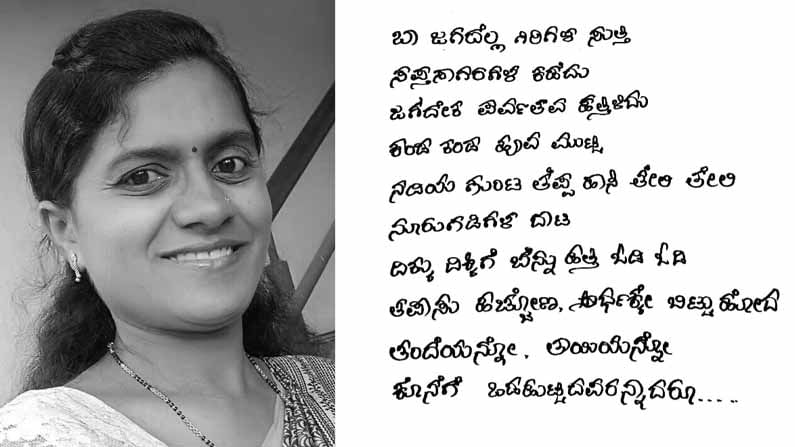 ಬಾ ಜಗದೆಲ್ಲ ಗಿರಿಗಳ ಸುತ್ತಿ
ಸಪ್ತಸಾಗರಗಳ ಕಡೆದು
ಜಗದೇಕ ಪರ್ವತವ ಹತ್ತಿಳಿದು
ಕಂಡ ಕಂಡ ಹೂವ ಮುಟ್ಟಿ
ನದಿಯ ಗುಂಟ ತೆಪ್ಪ ಹಾಸಿ ತೇಲಿ ತೇಲಿ
ನೂರುಗಡಿಗಳ ದಾಟಿ
ದಿಕ್ಕು ದಿಕ್ಕಿಗೆ ಬೆನ್ನು ಹತ್ತಿ ಓಡಿ ಓಡಿ
ತಪಾಸು ಹಚ್ಚೋಣ, ಅರ್ಧಕ್ಕೇ ಬಿಟ್ಟುಹೋದ
ತಂದೆಯನ್ನೋ, ತಾಯಿಯನ್ನೋ
ಕೊನೆಗೆ ಒಡಹುಟ್ಟಿದವರನ್ನಾದರೂ.....